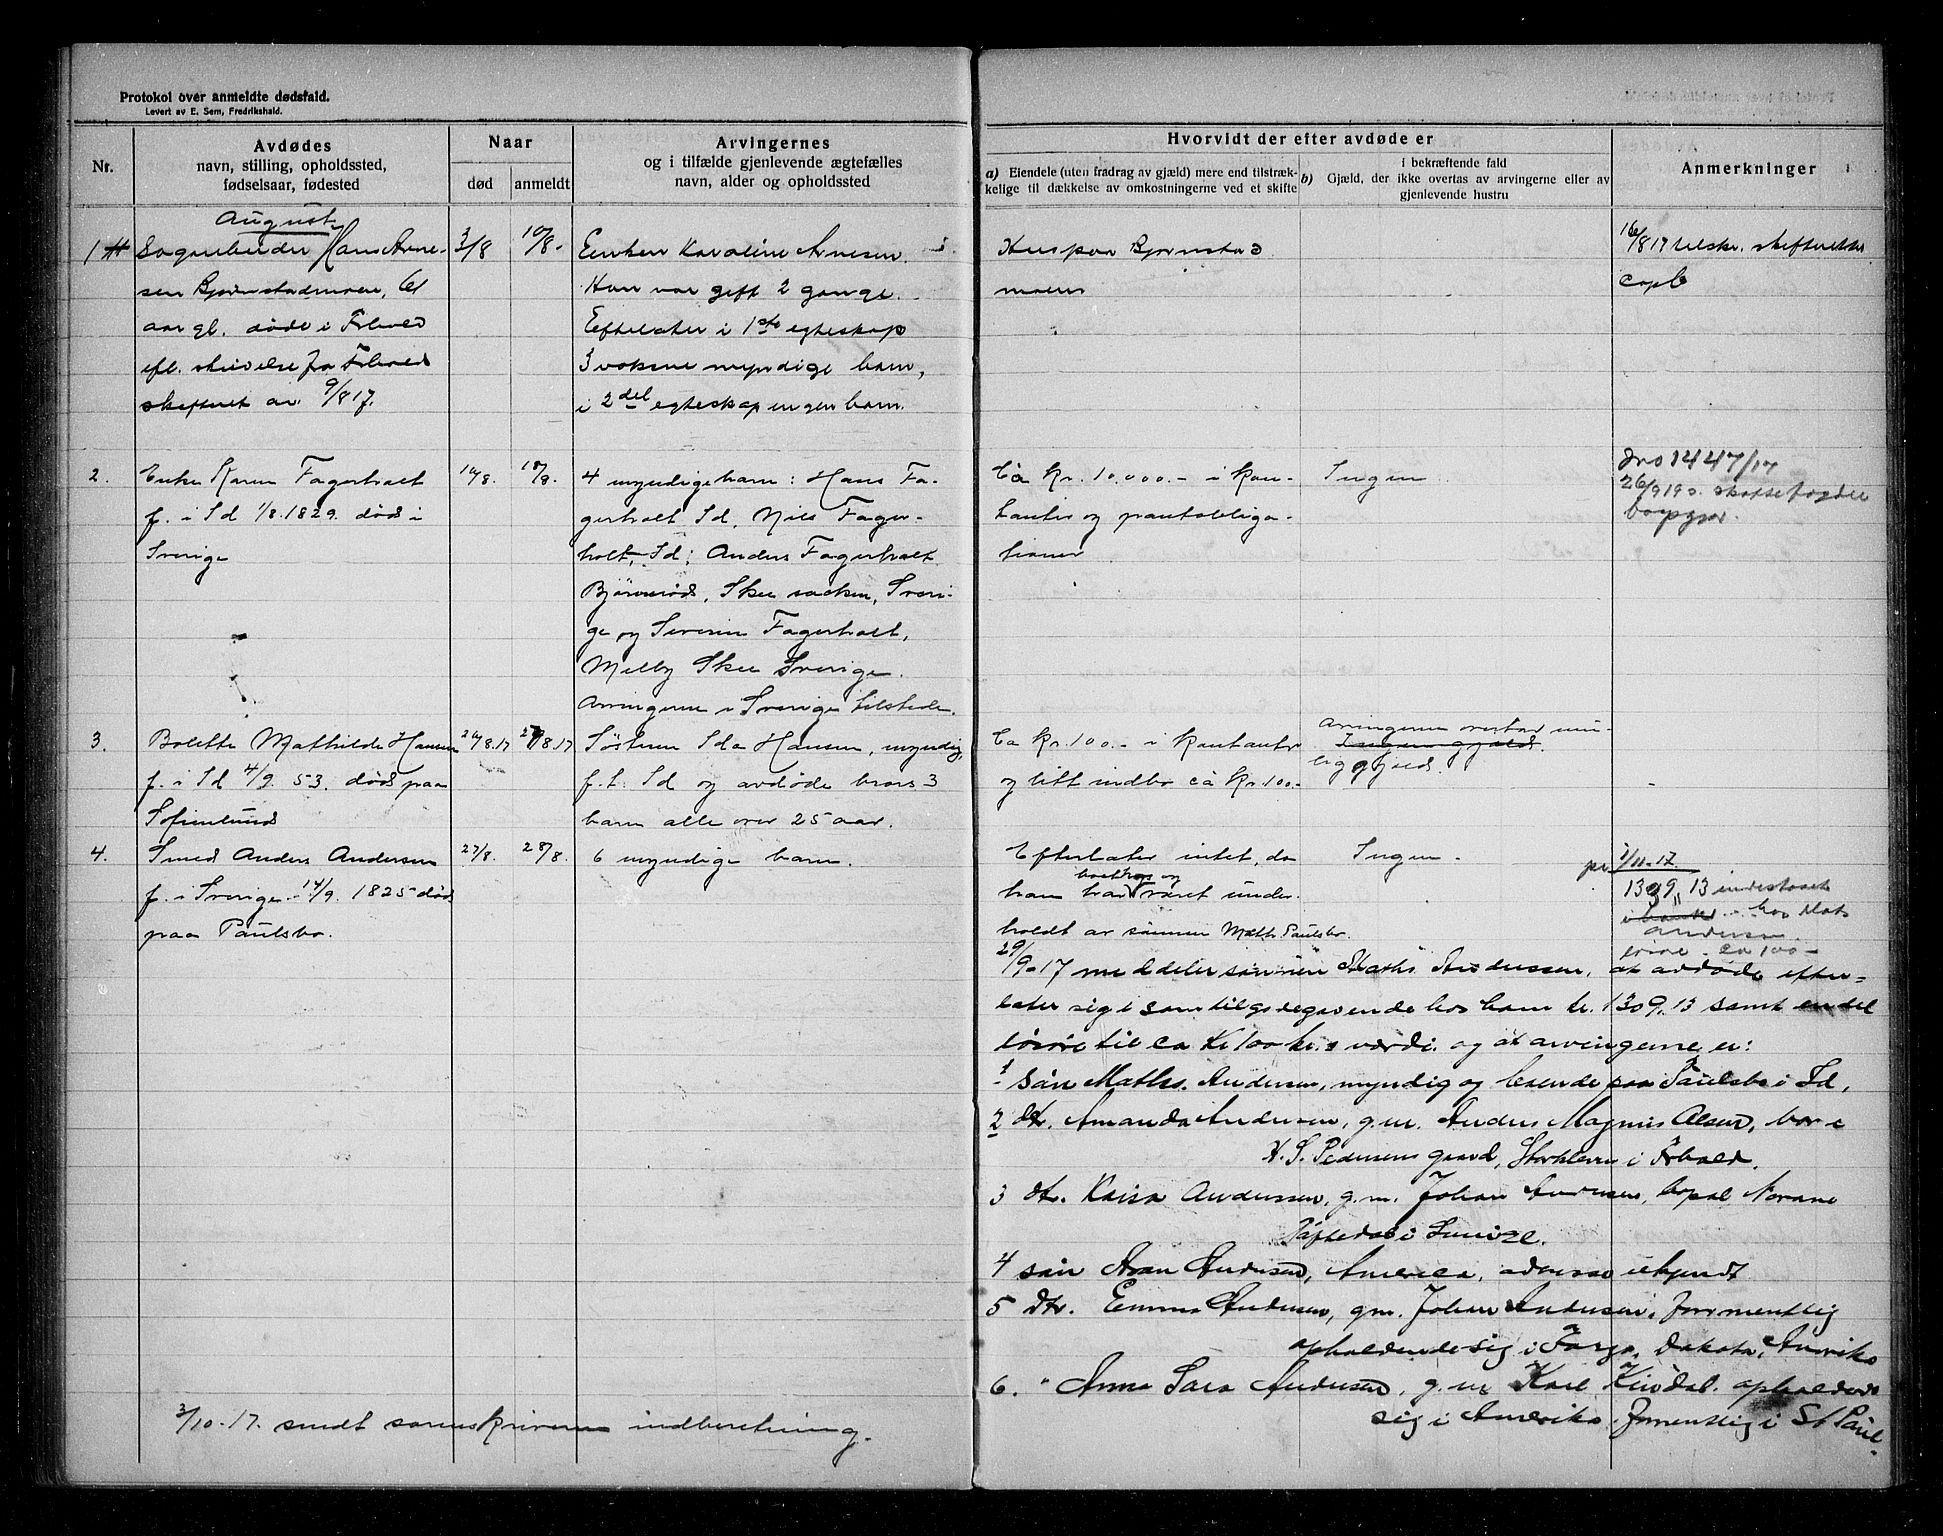 Protokol over anmeldte dødsfald.
Levert av E. Sem, Fredrikshald.
Nr.
Avdødes
navn, stilling, opholdssted,
fødselsaar, fødested
Naar
død
anmeldt
Arvingernes
og i tilfælde gjenlevende ægtefælles
navn, alder og opholdssted
Hvorvidt der efter avdøde er
a) Eiendele (uten fradrag av gjæld) mere end tilstræk-
kelige til dækkelse av omkostningerne ved et skifte
i bekræftende fald
b) Gjæld, der ikke overtas av arvingerne eller av
gjenlevende hustru
Anmerkninger
August
1
Hans Arne-
sen Bjørnstadmoen, 61
aar gl. døde i Frhald
efl. skrivelse fra Frhald
skifteret av 9/8 17.
3/8
10/8.
Enken Karoline Arnesen.
Han var gift 2 gange.
Efterlater i 1ste egteskap
3 voksne myndige barn,
i 2det egteskap ingen barn.
Huspaa Bjørnstad
moen
16/8 17 tilskr. skifteretten
2.
Enke Karen Fagerholt
f. i Id 1/8. 1829. død i
Sverige
14/8.
18/8.
4 myndige barn: Hans Fa-
gerholt Id, Nils Fager-
holt, Id; Anders Fagerholt
Bjørnerød, Skee socken, Sveri-
ge og Severin Fagerholt,
Melby Skee Sverige.
Arvingerne i Sverige tilstede.
Ca kr. 10.000.- i kon-
tanter og pantobliga-
tioner
Ingen
Jno 1447/17
3.
Bolette Mathilde Hansen
f. i Id 4/9. 53. død paa
Sofienlund
24/8.17
27/8.17
Søsteren Ida Hansen, myndig,
f. t. Id og avdøde brors 3
barn alle over 25 aar.
Ca kr. 100.- i kontanter
og litt indbo ca kr. 100.-
Arvingerne overtar mu-
Ingen gjæld.
lig gjæld.
-
4.
Smed Anders Andersen
f. i Sverige 14/9. 1825 død
paa Paulsbo.
27/8.
28/8.
6 myndige barn.
Efterlater intet, da
han har boet hos og været under-
holdt av sønnen Math. Paulsbo.
Ingen.
pr 1/10-17.
1309,13 indestaaet
i banken - hos Mats
Andersen
løsøre - ca 100-
29/9-17 meddeler sønnen Maths Andersen, at avdøde efter-
later sig i som tilgodehavende hos ham kr. 1309,13 samt endel
løsøre til ca kr 100 kr.s værdi. og at arvingerne er:
1 søn Maths. Andersen, myndig og boende paa Paulsbo i Id,
2 dtr. Amanda Andersen, g.m. Anders Magnus Olsen, bor i
H. S. Pedersens gaard, i Frhald.
3 dtr. Kaisa Andersen, g.m. Johan Andersen, bopæl Norane
i Sverige.
4 søn Aron Andersen, America, adresse ukjendt
5 dtr. Emma Andersen, gm. Johan Andersen, formentlig
opholdende sig i Fargo, Dakota, Amrika
6. " Anna Sara Andersen, g.m Karl Kindal. opholdende
sig i Amerika. formentlig i St Paul.
3/10-17. sendt sorenskriveren indberetning.